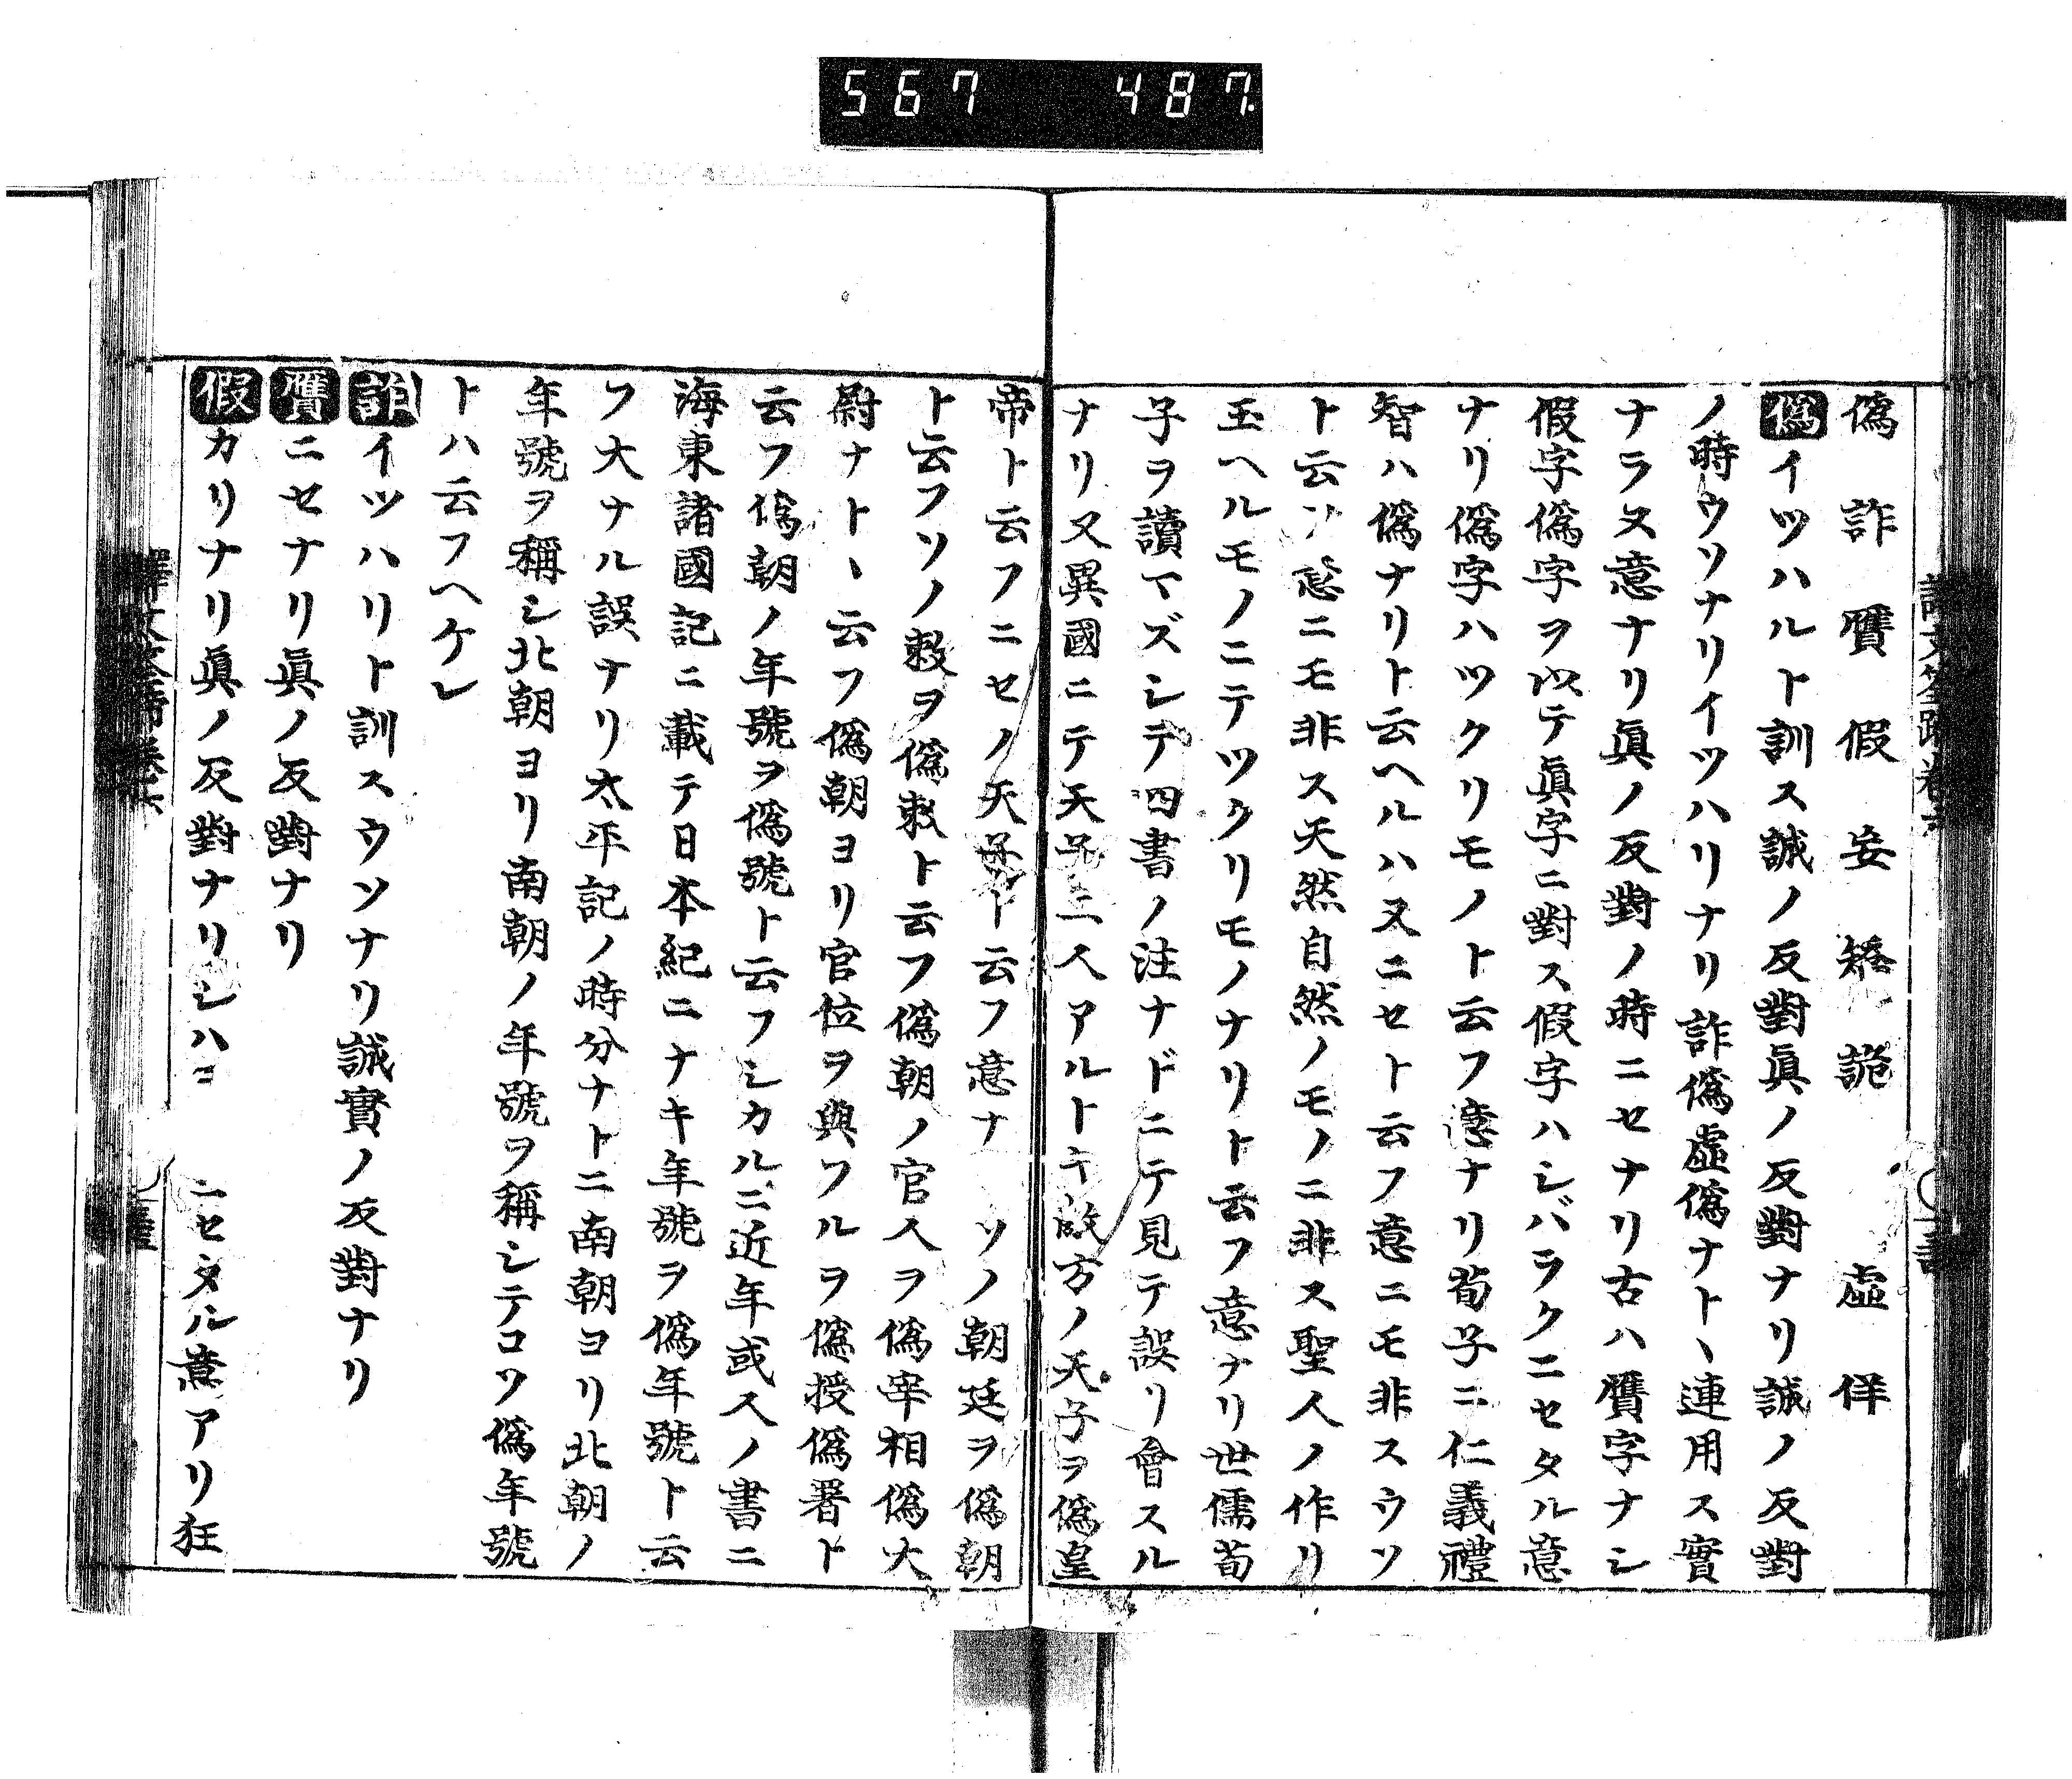 567 487.
僞 詐 贋 假 妄 矯 詭 虛 佯
僞イツハルト訓ス誠ノ反對眞ノ反對ナリ誠ノ反對
ノ時ウソナリイツハリナリ詐僞虛僞ナト、連用ス實
ナラヌ意ナリ眞ノ反對ノ時ニセナリ古ハ贋字ナシ
假字僞字ヲ以テ眞字ニ對ス假字ハシバラクニセタル意
ナリ僞字ハツクリモノト云フ意ナリ荀子ニ仁義禮
智ハ僞ナリト云ヘルハ又ニセト云フ意ニモ非スウソ
ト云フ意ニモ非ス天然自然ノモノニ非ス聖人ノ作リ
玉ヘルモノニテツクリモノナリト云フ意ナリ世儒荀
子ヲ讀マズシテ四書ノ注ナドニテ見テ誤リ會スル
ナリ又異國ニテ天子二人アルトキ敵方ノ天子ヲ僞皇
帝ト云フニセノ天子ト云フ意ナ ソノ朝廷ヲ僞朝
ト云フソノ敕ヲ僞敕ト云フ僞朝ノ官人ヲ僞宰相僞大
尉ナト、云フ僞朝ヨリ官位ヲ與フルヲ僞授僞署ト
云フ僞朝ノ年號ヲ僞號ト云フシカルニ近年或人ノ書ニ
海東諸國記ニ載テ日本紀ニナキ年號ヲ僞年號ト云
フ大ナル誤ナリ太平記ノ時分ナトニ南朝ヨリ北朝ノ
年號ヲ稱シ北朝ヨリ南朝ノ年號ヲ稱シテコソ僞年號
トハ云フヘケレ
詐イツハリト訓スウソナリ誠實ノ反對ナリ
贋ニセナリ眞ノ反對ナリ
假カリナリ眞ノ反對ナリシハ ニセタル意アリ狂